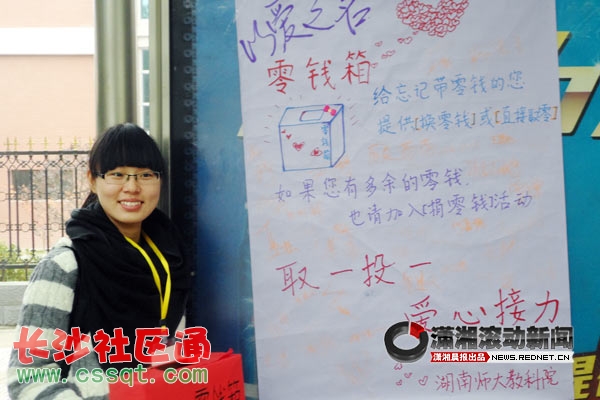 以爱之名
零钱箱
给忘记带零钱的您
提供[换零钱]或[直接取零]
零钱箱
如果您有多余的零钱.
也请加入[捐零钱]活动
取一投一
爱心接力
湖南师大教科院
潇湘滚动新闻
潇湘晨报出品 NEWS.REDNET.CN
长沙社区通
www.cssqt.com
零钱箱